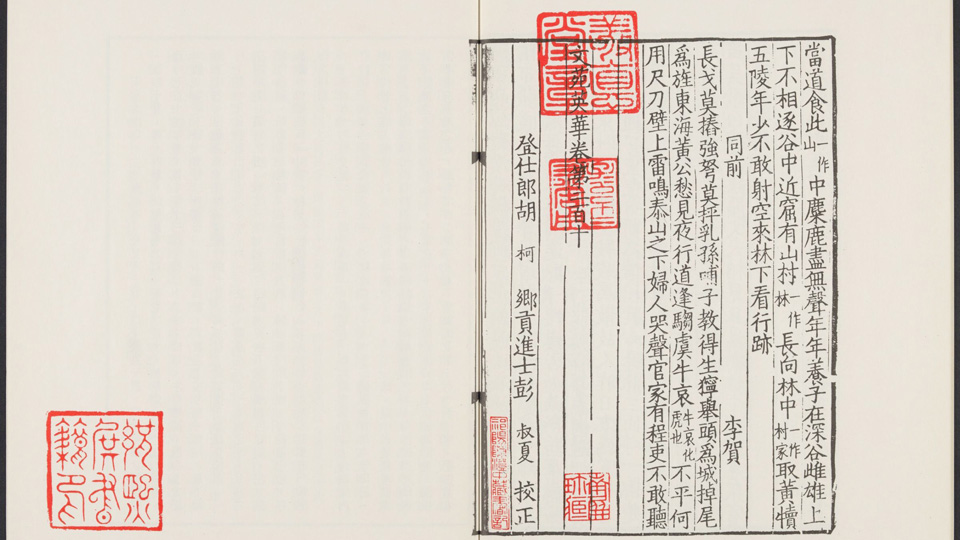 當道食此一作山中麋鹿盡無聲年年養子在深谷雌雄上
下不相逐谷中近窟有山村一作林長向林中一作村家取黃犢
五陵年少不敢射空來林下看行跡
同前 李賀
長戈莫摏強弩莫抨乳孫哺子教得生獰舉頭為城掉尾
為旌東海黃公愁見夜行道逢騶虞牛哀牛哀化虎也不平何
用尺刀壁上雷鳴泰山之下婦人哭聲官家有程吏不敢聽
文苑英華卷第二百十
登仕郎胡 柯 鄉貢進士彭 叔夏 挍正